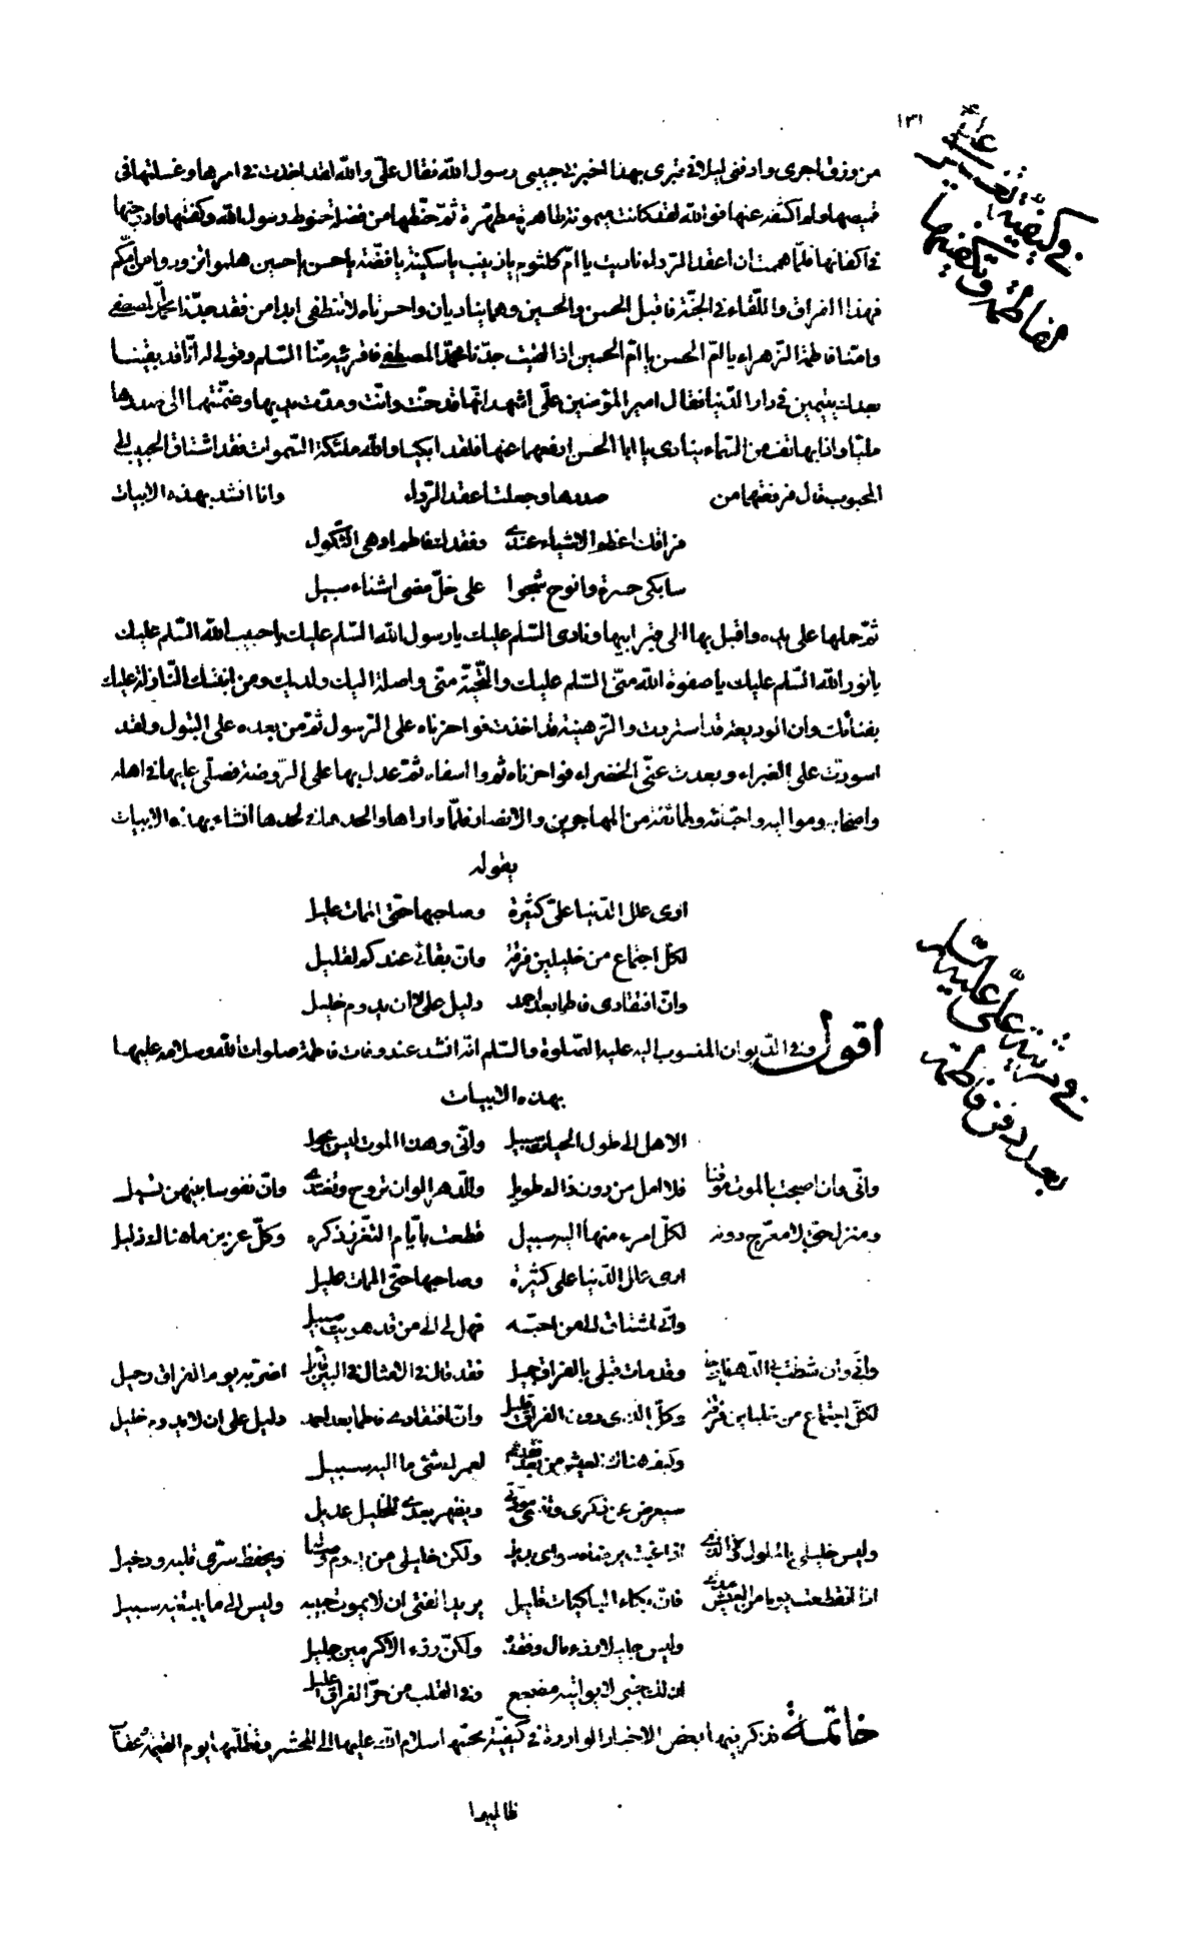 ١٣١
في كيفية تغسيل علي
لفاطمة وتكفينها
من رزق اجرى وادفنى ليلا في قبرى بهذا اخبرنى حبيبى رسول الله فقال علىّ والله لقد اخذت في امرها وغسلتها في
قميصها ولم اكشفه عنها فوالله لقد كانت ميمونة طاهرة مطهّرة ثمّ حنّطها من فضلة حنوط رسول الله وكفّنتها وادرجتها
في اكفانها فلمّا هممت ان اعقد الرّداء ناديت يا امّ كلثوم يا زينب يا سكينة يا فضّة يا حسن يا حسين هلموا تزودوا من امّكم
فهذا الفراق واللّقاء في الجنّة فاقبل الحسن والحسين وهما يناديان واحسرتاه لا تنطفى ابدا من فقد جدّنا محمّد المصطفى
وامّنا فاطمة الزّهراء يا امّ الحسن يا امّ الحسين اذا لقيت جدّنا محمّد المصطفى فاقرئيه منّا السّلم وقولى له انّا قد بقينا
بعدك يتيمين في دار الدّنيا فقال امير المؤمنين علىّ اشهد انّها قد حنّت وانّت ومدّت يديها وضمّتهما الى صدرها
مليّا واذا بهاتف من السّماء ينادى يا ابا الحسن ارفعهما عنها فلقد ابكيا والله ملئكة السّموات فقد اشتاق الحبيب الى
المحبوب قال فرفعتهما من صدرها وجعلت اعقد الرّداء وانا انشد بهذه الابيات
فراقك اعظم الاشياء عندى وفقدك فاطم ادهى الثّكول
سابكى حسرة وانوح شجوا على خلّ مضى اسناء سبيل
ثمّ حملها على يده واقبل بها الى قبر ابيها ونادى السّلم عليك يا رسول الله السّلم عليك يا حبيب الله السّلم عليك
يا نور الله السّلم عليك يا صفوة الله منّى السّلم عليك والتّحيّة منّى واصلة اليك ولديك ومن ابنتك النّازلة عليك
بفنائك وان الوديعة قد استردت والرّهينة قد اخذت فواحزناه على الرّسول ثمّ من بعده على البتول ولقد
اسودّت على الغبراء وبعدت عنّى الخضراء فواحزناه ثم وا اسفاه ثمّ عدل بها على الرّوضة فصلّى عليها في اهله
واصحابه ومواليه واحبّائه وطائفة من المهاجرين والانصار فلمّا واراها والحدها في لحدها انشاء بهذه الابيات
يقول
ارى علل الدّنيا علىّ كثيرة وصاحبها حتّى الممات عليل
لكلّ اجتماع من خليلين فرقة وانّ بقائى عندكم لقليل
وانّ افتقادى فاطما بعد احمد دليل على ان لا يدوم خليل
في مرثية علىّ عليه السلام
بعد دفن فاطمة
اقول وفى الدّيوان المنسوب اليه عليه الصّلوة والسّلم انّه انشد عند وفات فاطمة صلوات الله وسلامه عليها
بهذه الابيات
الا هل الى طول الحيات سبيل وانّى وهذا الموت ليس يحول
وانّى وان اصبحت بالموت موقنا فلى امل من دون ذاك طويل وللدّهر الوان تروح وتغتدى وانّ نفوسا بينهنّ تسيل
ومنزل حقّ لا معرّج دونه لكلّ امرء منها اليه سبيل قطعت بايّام التّعزز ذكره وكلّ عزيز ما هناك ذليل
ارى علل الدّنيا على كثيرة وصاحبها حتّى الممات عليل
وانّى لمشتاق الى من احبّه فهل لى الى من قد هويت سبيل
وانّى وان شطّت بى الدّار نازحا وقد مات قبلى بالفراق جميل فقد قال في الامثال في البين قائل اضرّ به يوم الفراق رحيل
لكلّ اجتماع من خليلين فرقة وكلّ الّذى دون الفراق قليل وانّ افتقادى فاطما بعد احمد دليل على ان لا يدوم خليل
وكيف هناك العيش من بعد فقدهم لعمرك شئ ما اليه سبيل
سيعرض عن ذكرى وتنسى مودّتى ويظهر بعدى للخليل عديل
وليس خليلى بالملول ولا الّذى اذا غبت يرضاه سواى بديل ولكن خليلى من يدوم وصاله ويحفظ سرّى قلبه ودخيل
اذا انقطعت يوما من العيش مدّتى فانّ بكاء الباكيات قليل يريد الفتى ان لا يموت حبيبه وليس الى ما يبتغيه سبيل
وليس جليلا رزء مال وفقده ولكنّ رزء الاكرمين جليل
لذلك جنبى لا يواتيه مضجع وفى القلب من حرّ الفراق غليل
خاتمة نذكر فيها بعض الاخبار الواردة في كيفيّة مجيئها سلام الله عليها الى المحشر وتظلّمها يوم القيمة
ظالميها